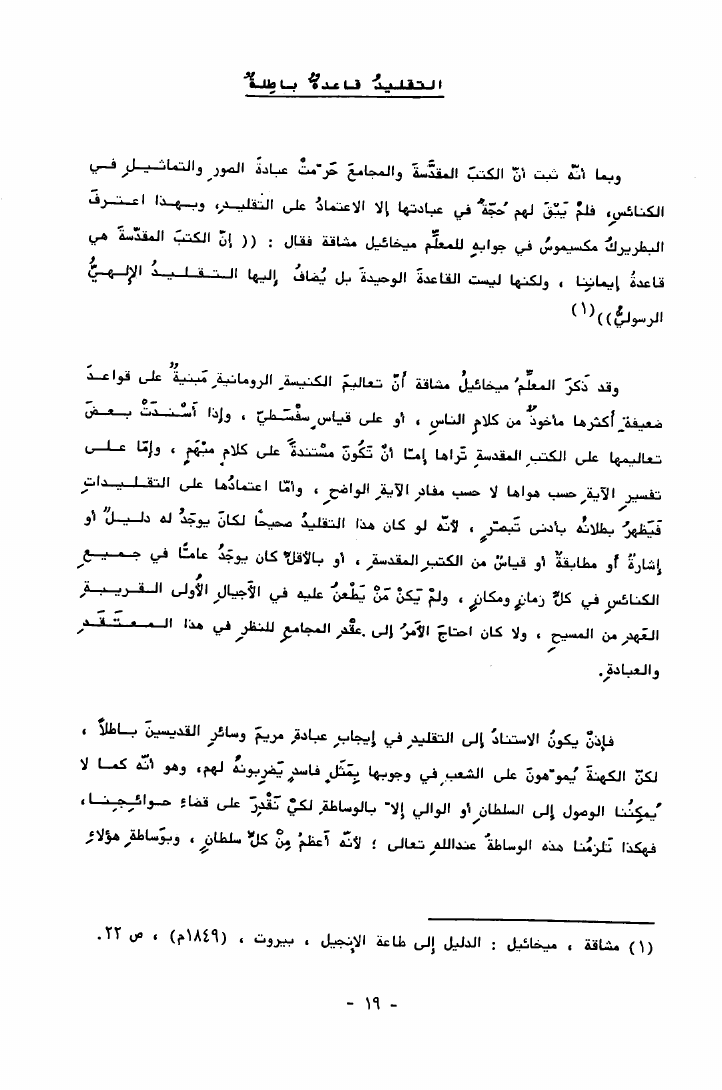 التقليدُ قاعدةٌ باطِلةٌ
وبما أنّه ثبت أنّ الكتبَ المقدَّسةَ والمجامعَ حَرّمتْ عبادةَ الصورِ والتماثيلِ في
الكنائسِ، فلمْ يَبْقَ لهم حُجّةٌ في عبادتها إلا الاعتمادُ على التقليدِ، وبهذا اعترفَ
البطريركُ مكسيموسُ في جوابهِ للمعلِّمِ ميخائيل مشاقة فقال : (( إنّ الكتبَ المقدّسةَ هي
قاعدةُ إيمانِنا ، ولكنها ليست القاعدةَ الوحيدةَ بل يُضافُ إليها التقليدُ الإلهيُّ
الرسوليُّ))(١)
وقد ذَكَرَ المعلِّمُ ميخائيلُ مشاقة أنّ تعاليمَ الكنيسةِ الرومانيةِ مَبنيةٌ على قواعدَ
ضعيفةٍ أكثرها مأخوذٌ من كلامِ الناسِ ، أو على قياسٍ سفْسَطيّ ، وإذا أسْنَدَتْ بعضَ
تعاليمها على الكتبِ المقدسةِ تَراها إمّا أنْ تَكُونَ مسْتندةً على كلامٍ مبْهَمٍ ، وإمّا على
تفسيرِ الآيةِ حسب هواها لا حسب مفادِ الآيةِ الواضحِ ، وأمّا اعتمادُها على التقليداتِ
فَيَظهرُ بطلانُه بأدنى تَبصّرٍ ، لأنّه لو كان هذا التقليدُ صحيحًا لكانَ يوجَدُ له دليلٌ أو
إشارةٌ أو مطابقةٌ أو قياسٌ من الكتبِ المقدسةِ ، أو بالأقلِّ كان يوجَدُ عامًّا في جميعِ
الكنائسِ في كلِّ زمانٍ ومكانٍ ، ولمْ يَكنْ مَنْ يَطْعنُ عليه في الأجيالِ الأُولى القريبةِ
العَهدِ من المسيحِ ، ولا كان احتاجَ الأمرُ إلى عقْدِ المجامعِ للنظرِ في هذا المعتَقَدِ
والعبادةِ.
فإذنْ يكونُ الاستنادُ إلى التقليدِ في إيجابِ عبادةِ مريمَ وسائرِ القديسينَ باطلاً ،
لكنّ الكهنةَ يُموّهونَ على الشعبِ في وجوبها بِمَثَلٍ فاسدٍ يَضرِبونهُ لهم، وهو أنّه كما لا
يُمكِنُنا الوصول إلى السلطانِ أو الوالي إلاّ بالوساطةِ لكيْ نَقْدِرَ على قضاءِ حوائجِنا،
فهكذا تَلزمُنا هذه الوساطةُ عندالله تعالى ؛ لأنّه أعظمُ مِنْ كلِّ سلطانٍ ، وبوَساطةِ هؤلاءِ
(١) مشاقة ، ميخائيل : الدليل إلى طاعة الإنجيل ، بيروت ، (١٨٤٩م) ، ص ٢٢.
- ١٩ -